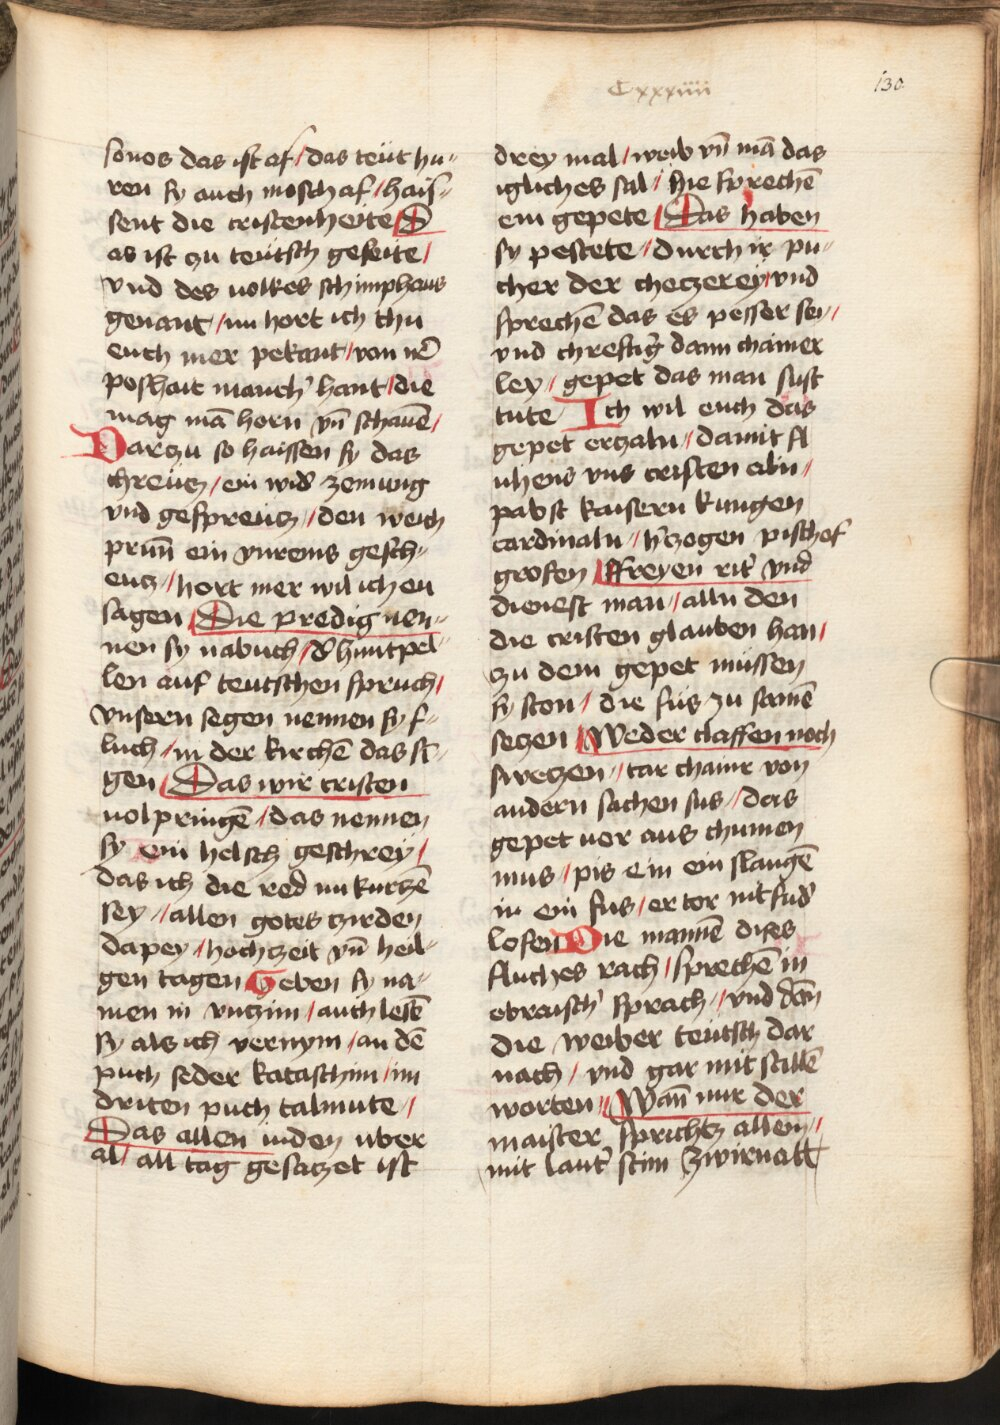 Cxxxiiii
130
sonos das ist af / das teüt hu-
ren sy auch moschaf / hais-
sent die cristenheite / D
as ist zu teütsch geseite /
vnd des uolkes schimphaus
genant / nu hort ich thu
euch mer pekant / von ir
poshait manch' hant / die
mag mā horn vn̄ schauē /
Darzu so haissen sy das
chreücz / ein wid' zemung
vnd gespreücz / den weich
prun̄ ein vnreins gesch-
eucz / hort mer wil ich eu
sagen / Die predig nen-
nen sy nabuch / d' huntpel-
len auf teutschen spruch /
vnsern segen nennen sy f-
luch / in der kirchē das si-
gen / Das wir cristen
uolpringē / das nennen
sy ein helsch geschrey /
das ich die red mit kurczē
sey / allen gotes zirden
dapey / hochzeit vn̄ heil-
gen tagen Geben sy na-
men in vnzim / auch lesē
sy als ich vernym / an dē
puch seder kataschim / im
driten puch talmute /
Das allen iuden uber
al / all tag gesaczet ist
drey mal / weib vn̄ mā das
igliches sal / Hie sprechē
ein gepete / Das haben
sy pestete / durch ir pu-
cher der checzerey / vnd
sprechē das es pesser sey /
vnd chreftig' dann chainer
ley / gepet das man sust
tute Ich wil euch das
gepet erzaln / damit fl
uhens vns cristen ailn /
pabst kaisern kungen
cardinaln / h'czogen pischof
grofen / ffreyen rit' vnd
dienest man / alln den
die cristen glauben han /
zu dem gepet müssen
sy sten / die füs zu samē
seczen / Weder claffen noch
sweczen / tar chainr von
andern sachen sus / das
gepet uor aus chumen
mus / pis em ein slangē
in ein fus / er tor nit fud'
losen Die mannē dises
fluches rach / sprechē in
ebraisch' sprach / vnd dan̄
die weiber teütsch dar
nach / vnd gar mit stillē
worten / Wan̄ nur der
maister sprichcz allen /
mit laut' stim zwirnatt